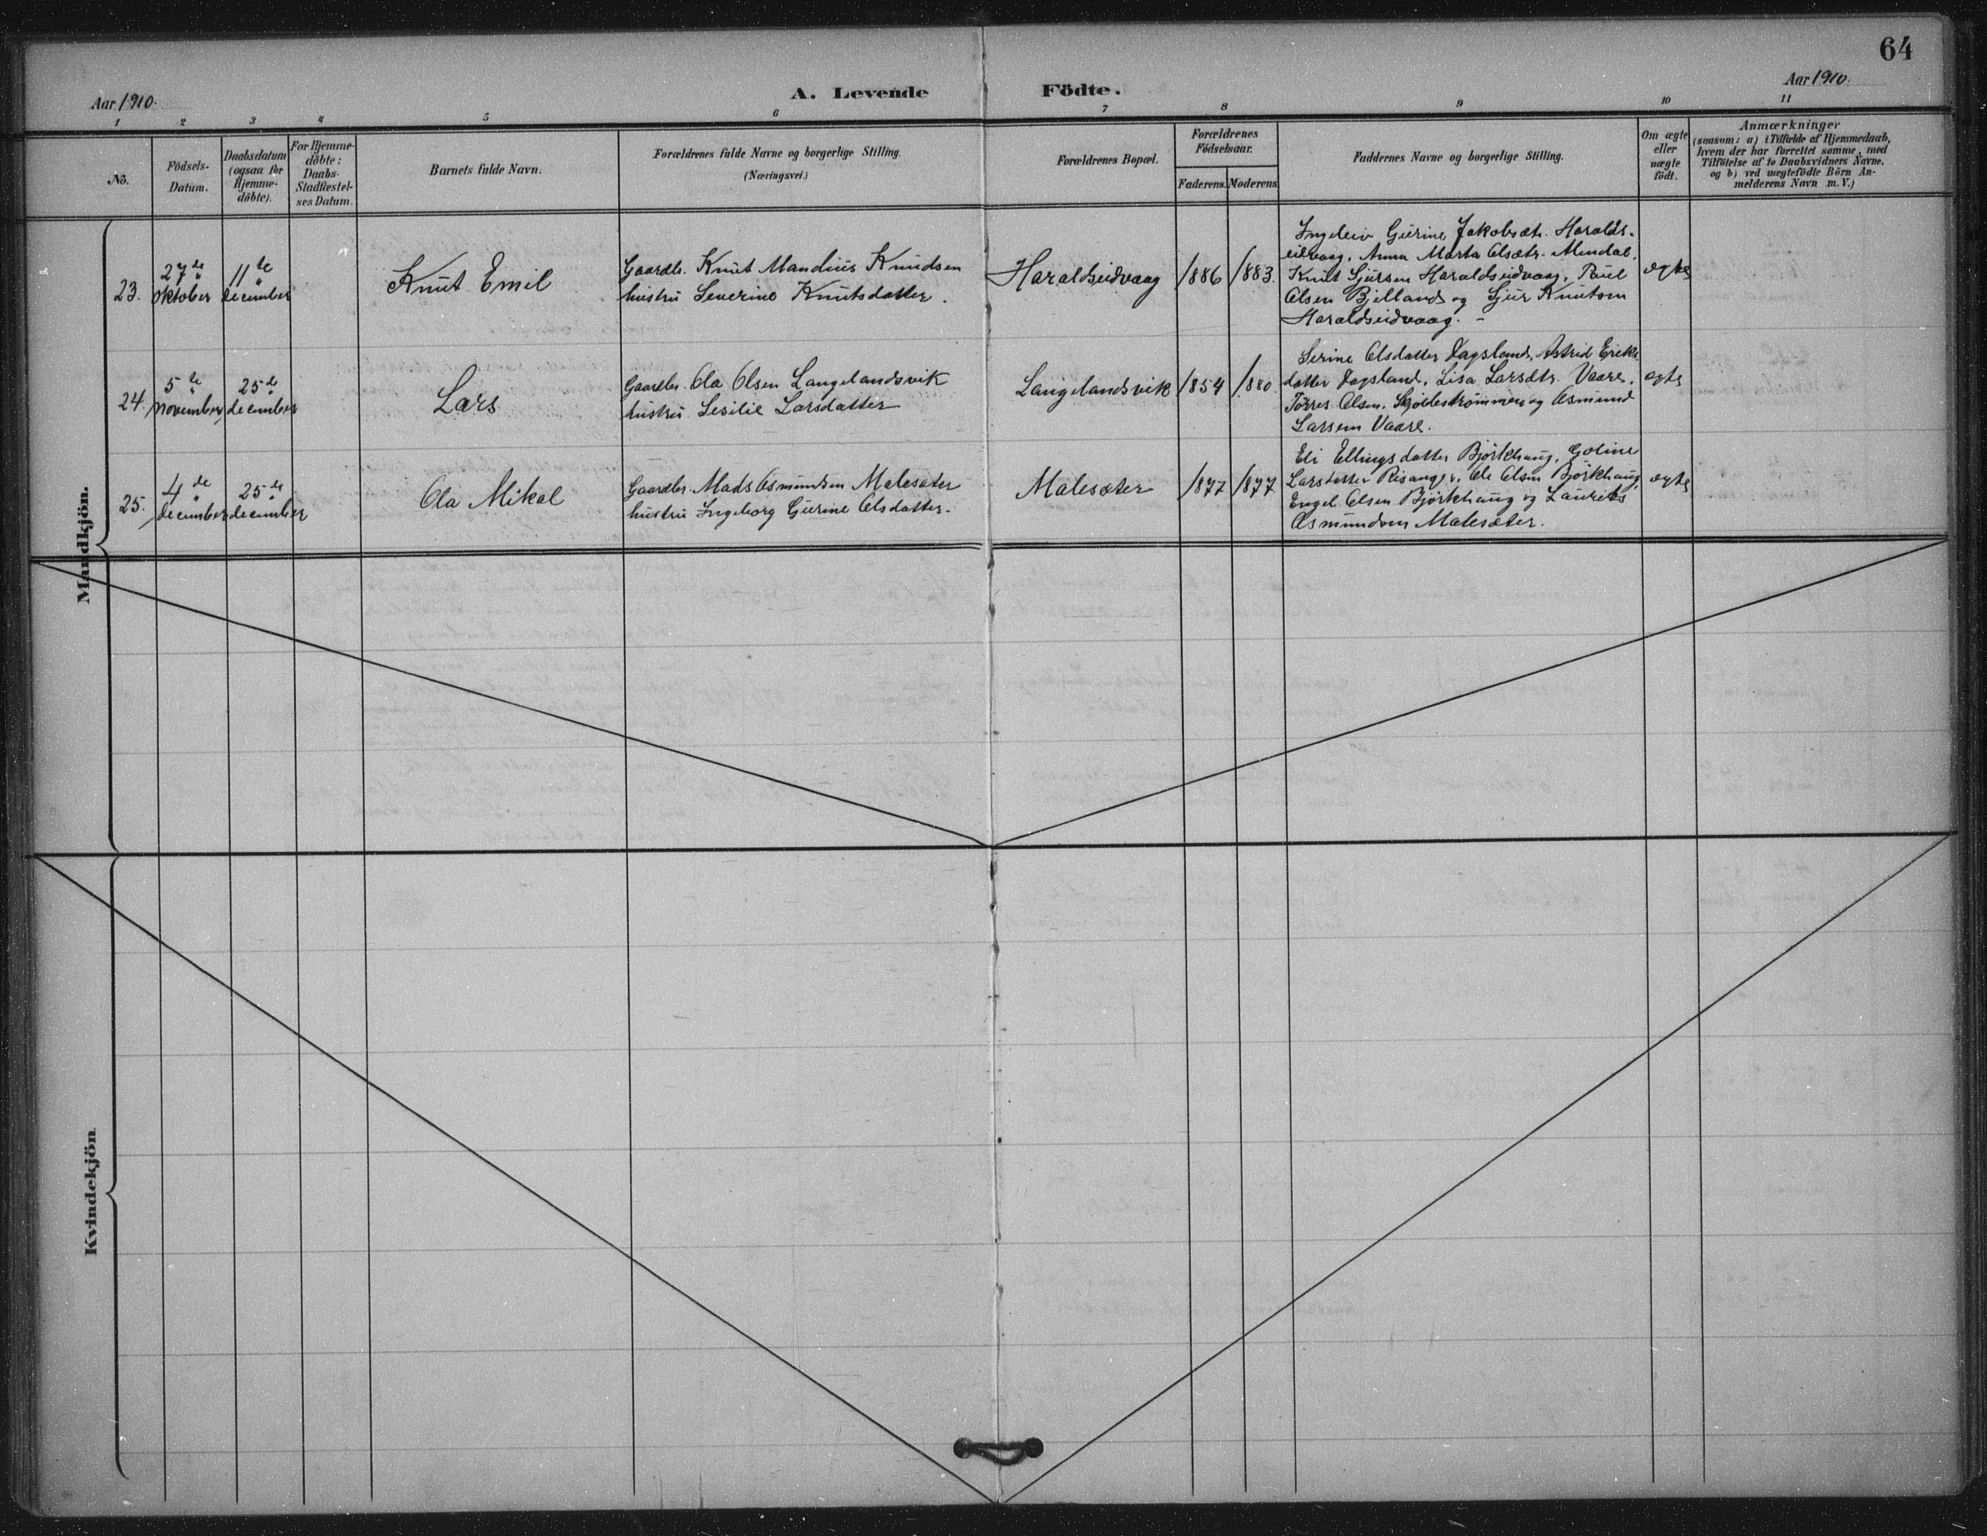 64
Aar 1910.
A. Levende Födte.
Aar 1910.
1 2 3 4 5 6 7 8 9 10 11
No.
Födsels-
Datum.
Daabsdatum
(ogsaa for
Hjemme-
döbte).
For Hjemme-
döbte:
Daabs-
Stadfæstel-
ses Datum.
Barnets fulde Navn.
Forældrenes fulde Navne og borgerlige Stilling.
(Næringsvei.)
Forældrenes Bopæl.
Forældrenes
Födselsaar.
Faderens. Moderens
Faddernes Navne og borgerlige Stilling.
Om ægte
eller
uægte
födt.
Anmærkninger
(saasom: a) i Tilfælde af Hjemmedaab,
hvem der har forrettet samme, med
Tilföielse af to Daabsvidners Navne.
og b) ved uægtefödte Börn An-
melderens Navn m. V.)
Mandkjön.
23.
27de
oktober
11te
december
Knut Emil
Gaardbr. Knut Mandius Knudsen
hustru Severine Knutsdatter.
Haraldseidvaag
1886
1883.
Gurine Jakobsdtr. Haralds-
eidvaag, Anna Marta Olsdtr. Mendal,
Knut Sjursen Haraldseidvaag, Paul
Olsen Bjelland og Sjur Knutsen
Haraldseidvaag. -
ægte
24.
5te
november
25de
december
Lars
Gaardbr. Ola Olsen Langelandsvik
hustru Sesilie Larsdatter
Langelandsvik
1854
1880
Serine Olsdatter Dagsland, Astrid Eriks
datter Dagsland, Lisa Larsdtr. Vaare,
Tørres Olsen, og Asmund
Larsen Vaare.
ægte
25.
4de
december
25de
december
Ola Mikal
Gaardbr. Mads Asmundsen Malesæter
hustru Ingeborg Gurine Olsdatter.
Malesæter
1877
1877
Eli Ellingsdatter Bjørkhaug, Goline
Larsdatter Ole Olsen Bjørkhaug,
Engel Olsen Bjørkhaug og Laurits
Asmundsen Malesæter.
ægte
Kvindekjön.